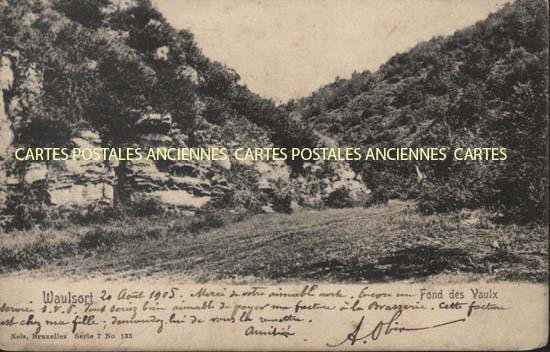 CARTES POSTALES ANCIENNES CARTES POSTALES ANCIENNES CARTES
Waulsort 20 Août 1905. Merci de votre aimable carte. Encore un Fond des Vaulx
service S.V.P. Vous serez bien aimable de payer ma facture à la Brasserie. Cette facture
est chez ma fille; demandez-lui de vous la remettre.
Amitiés A. Olin
Nels, Bruxelles Série 7 No 135